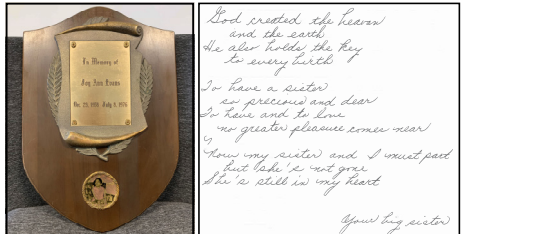 In Memory of
Joy Ann Evans
Dec. 29, 1950 July 9, 1976
God created the heaven
and the earth
He also holds the key
to every birth
To have a sister
so precious and dear
To have and to love
no greater pleasure comes near
Now my sister and I must part
but she's not gone
She's still in my heart
Your big sister